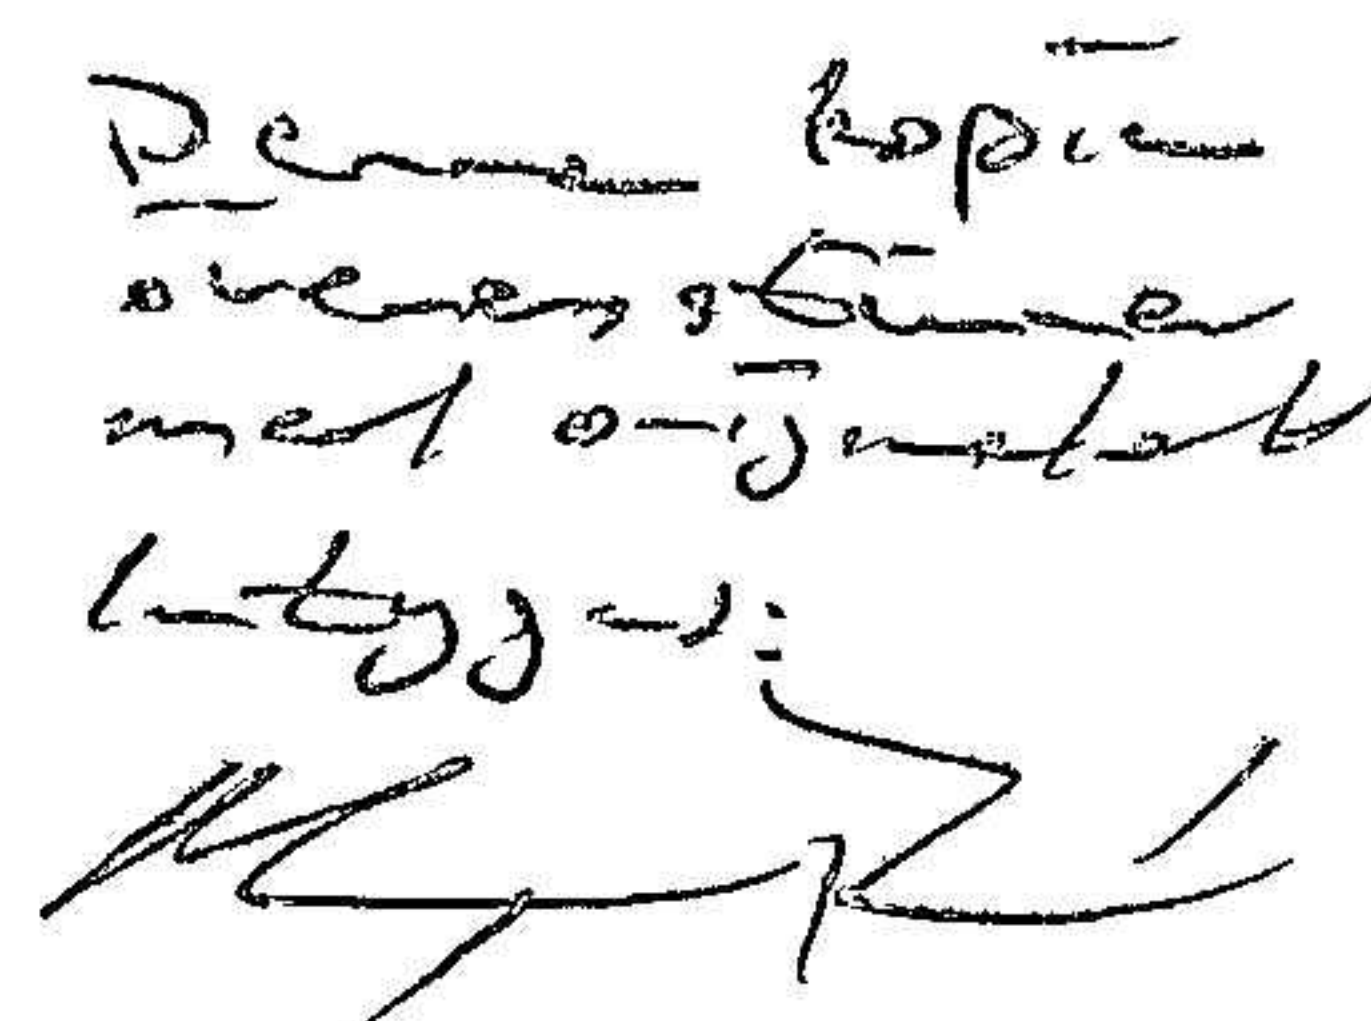 Denna kopia
överensstämmer
med originalet
Intygas: